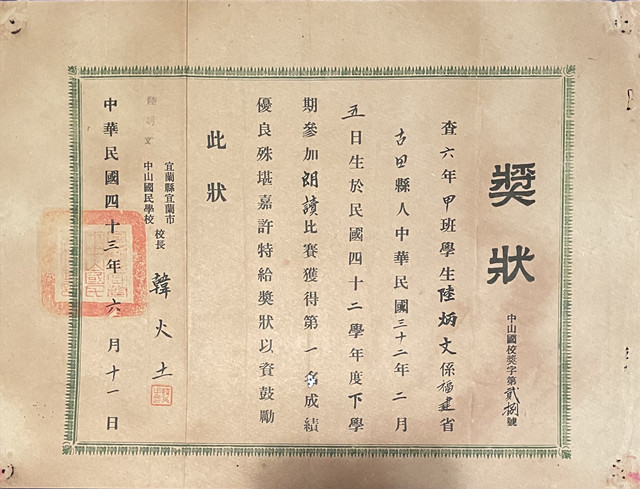 獎狀
中山國校獎字第貳捌號
查六年甲班學生陸炳文係福建省
古田縣人中華民國三十二年二月
五日生於民國四十二學年度下學
期參加朗讀比賽獲得第一名成績
優良殊堪嘉許特給獎狀以資鼓勵
此狀
宜蘭縣宜蘭市
中山國民學校
校長
韓火土
中華民國四十三年六月十一日